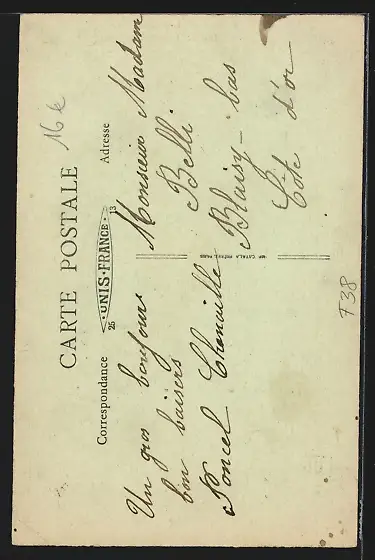 16 k
CARTE POSTALE
25 UNIS-FRANCE 13
Correspondance
Adresse
Un gros bonjour
bon baisers
Poncel Chenaille
IMP. CATALA FRÈRES, PARIS
Monsieur Madam
Belli
Blaisy-bas
Côte d'or
F38